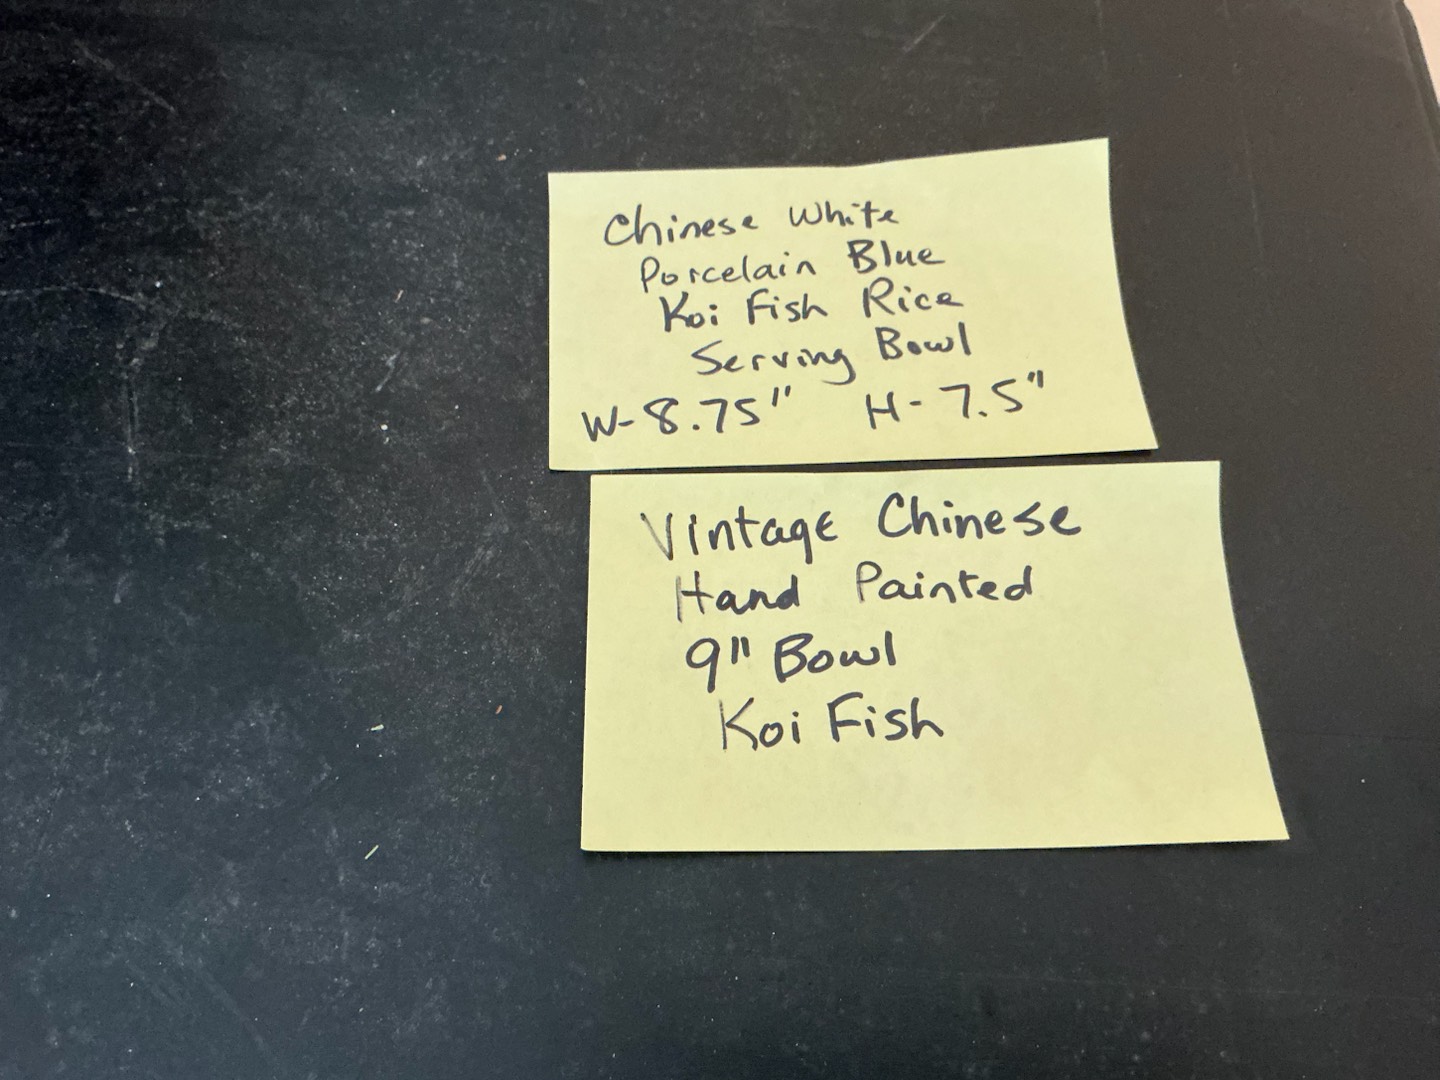 Chinese White
Porcelain Blue
Koi Fish Rice
Serving Bowl
W-8.75" H-7.5"
Vintage Chinese
Hand Painted
9" Bowl
Koi Fish